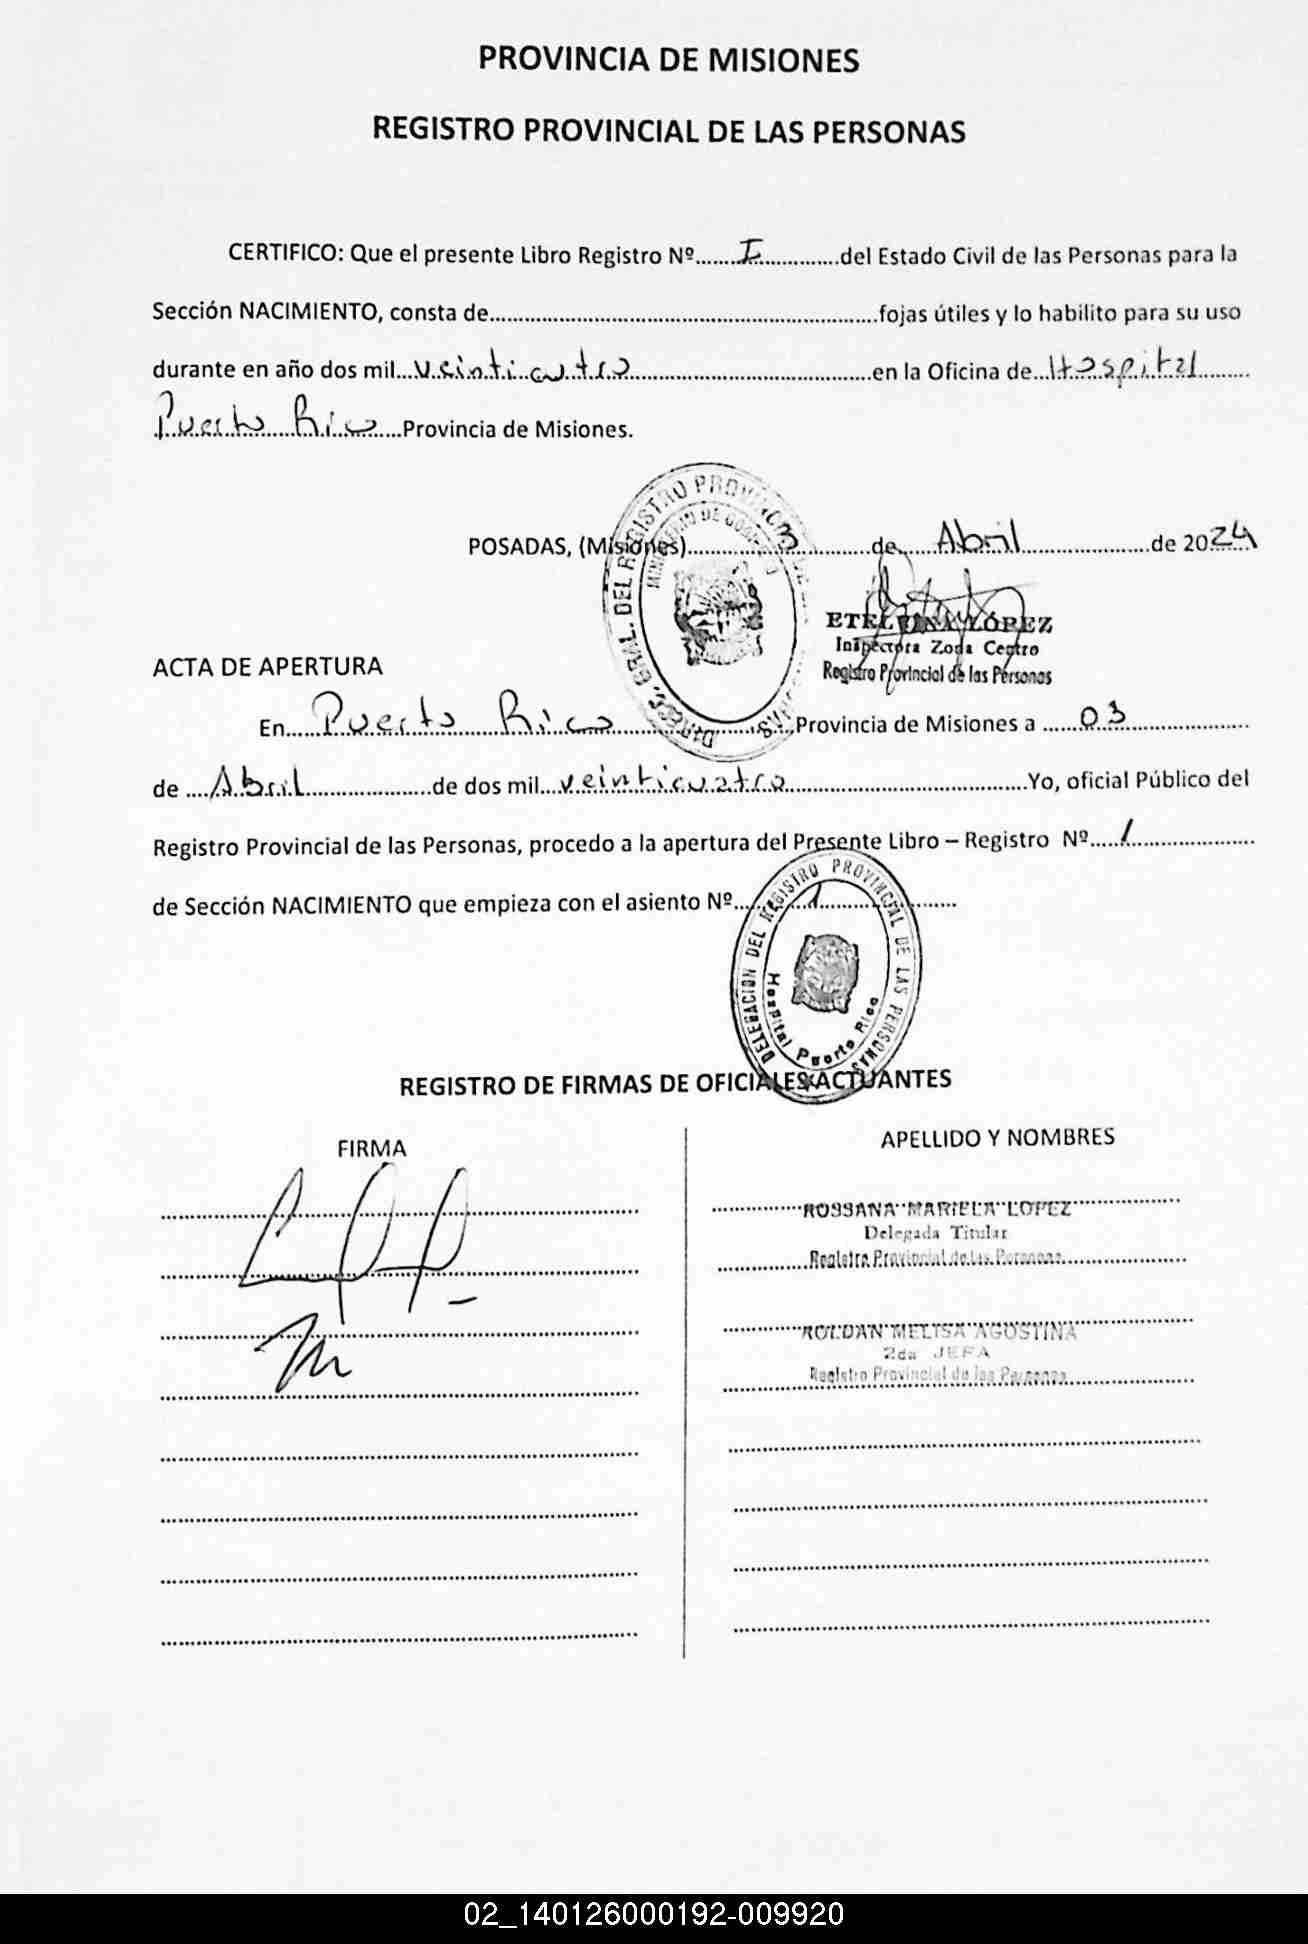 PROVINCIA DE MISIONES
REGISTRO PROVINCIAL DE LAS PERSONAS
CERTIFICO: Que el presente Libro Registro Nº.......I..............del Estado Civil de las Personas para la
Sección NACIMIENTO, consta de..............................................................fojas útiles y lo habilito para su uso
durante en año dos mil...veinticuatro.......................................en la Oficina de...Hospital.........
Puerto Rico....Provincia de Misiones.
POSADAS, (Misiones)................3............de......Abril.....................de 2024
ETELVINA LÓPEZ
Inspectora Zona Centro
Registro Provincial de las Personas
DIRECC. GRAL. DEL REGISTRO PROVINCIAL DE LAS PERSONAS
MINISTERIO DE GOBIERNO
ACTA DE APERTURA
En......Puerto Rico.........................Provincia de Misiones a ......03....................
de ....Abril....................de dos mil...veinticuatro.......................................Yo, oficial Público del
Registro Provincial de las Personas, procedo a la apertura del Presente Libro – Registro Nº.....1....................
de Sección NACIMIENTO que empieza con el asiento Nº............1......................
DELEGACION DEL REGISTRO PROVINCIAL DE LAS PERSONAS
Hospital Puerto Rico
REGISTRO DE FIRMAS DE OFICIALES ACTUANTES
FIRMA
APELLIDO Y NOMBRES
ROSSANA MARIELA LOPEZ
Delegada Titular
Registro Provincial de las Personas
ROLDAN MELISA AGOSTINA
2da JEFA
Registro Provincial de las Personas
02_140126000192-009920